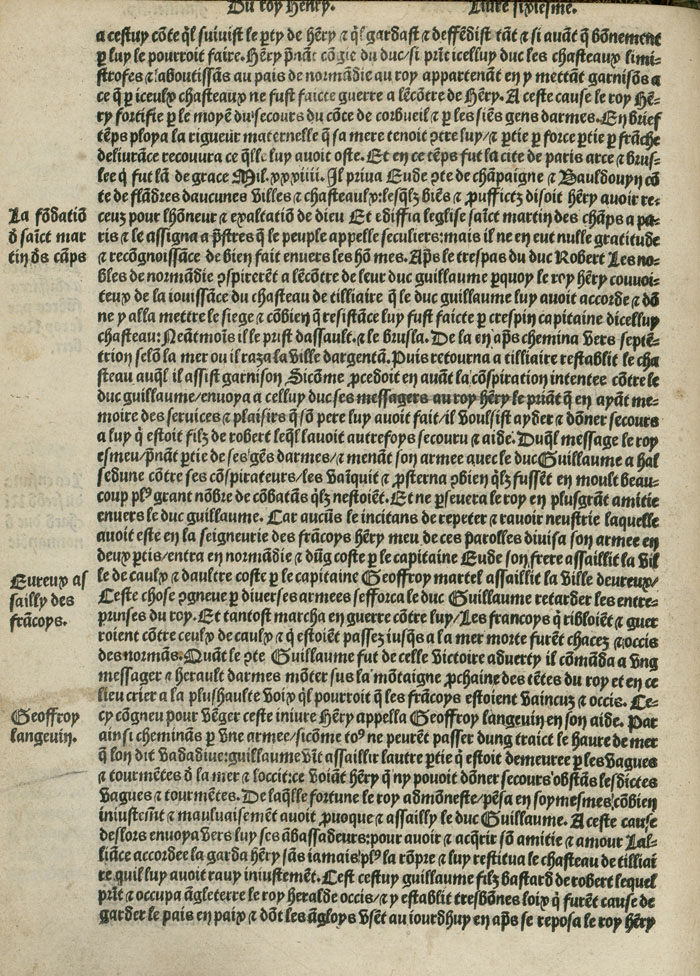 Du roy Henry. Liure sixiesme.
a cestuy cõte ql̃ suiuist le p̱ty de hẽry ⁊ ql̃ gardast ⁊ deffẽdist tãt ⁊ si auãt q̃ bõnement
p̱ luy le pourroit faire. Hẽry p̃nãt cõgie du duc/si prĩt icelluy duc les chasteaux limi-
strofes ⁊ laboutissãs au pais de normãdie au roy appartenãt en y mettãt garnisõs a
ce q̃ p̱ iceulx chasteaux ne fust faicte guerre a lẽcõtre de Hẽry. A ceste cause le roy Hẽ-
ry fortifie p̱ le moyẽ du secours du cõce de corbueil ⁊ p̱ les siẽs gens darmes. En brief
tẽps ploya la rigueur maternelle q̃ sa mere tenoit ꝯtre luy/⁊ p̱tie p̱ force p̱tie p̱ frãche
deliurãce recouura ce q̃lle luy auoit oste. Et en ce tẽps fut la cite de paris arce ⁊ brus-
lee q̃ fut lã de grace Mil.xxxiiii. Jl priua Eude ꝯte de chãpaigne ⁊ Bauldouyn cõ
te de flãdres daucunes villes ⁊ chasteaulx:lesq̃lz biẽs ⁊ ꝓuffictz disoit hẽry auoir re-
ceuz pour lhõneur ⁊ exaltatiõ de dieu Et ediffia leglise saĩct martin des chãps a pa-
La fõdatiõ
ris ⁊ le assigna a p̃stres q̃ le peuple appelle seculiers:mais il ne en eut nulle gratitude
d̃ saĩct mar
⁊ recõgnoissãce de bien fait enuers les hõ mes. Ap̃s le trespas du duc Robert Les no-
tin d̃s cãps
bles de normãdie ꝯspirerẽt a lẽcõtre de leur duc guillaume p̱quoy le roy hẽry couuoi-
teux de la iouissãce du chasteau de tilliaire q̃ le duc guillaume luy auoit accorde ⁊ dõ
ne y alla mettre le siege ⁊ cõbien q̃ resistãce luy fust faicte p̱ crespin capitaine dicelluy
chasteau: Neãtmoĩs il le prist dassault.⁊ le brusla. De la en ap̃s chemina vers septẽ-
trion selõ la mer ou il raza la ville dargentã. Puis retourna a tilliaire restablit le cha
steau auq̃l il assist garnison Sicõme ꝓcedoit en auãt la cõspiration intentee cõtre le
duc guillaume/enuoya a celluy duc ses messagers au roy hẽry le priãt q̃ en ayãt me-
moire des seruices ⁊ plaisirs q̃ sõ pere luy auoit fait/il voulsist ayder ⁊ dõner secours
a luy q̃ estoit filz de robert leq̃l lauoit autrefoys secouru ⁊ aide. Duq̃l message le roy
esmeu/p̃nãt p̱tie de ses gẽs darmes/⁊ menãt son armee auec le duc Guillaume a hal
sedune cõtre ses cõspirateurs/les vaĩquit ⁊ ꝓsterna ꝯbien q̃lz fussẽt en moult beau-
coup plꝰ grant nõbre de cõbatãs q̃lz nestoiẽt. Et ne p̱seuera le roy en plusgrãt amitie
enuers le duc guillaume. Car aucũs le incitans de repeter ⁊ rauoir neustrie laquelle
auoit este en la seigneurie des frãcoys hẽry meu de ces parolles diuisa son armee en
deux p̱tis/entra en normãdie ⁊ dũg coste p̱ le capitaine Eude son frere assaillit la vil
Eureux as
le de caulx ⁊ daultre coste p̱ le capitaine Geoffroy martel assaillit la ville deureux/
sailly des
Ceste chose ꝯgneue p̱ diuerses armees sefforca le duc Guillaume retarder les entre-
frãcoys.
prinses du roy. Et tantost marcha en guerre cõtre luy/Les francoys q̃ ribloiẽt ⁊ guer
roient cõtre ceulx de caulx ⁊ q̃ estoiẽt passez iusq̃s a la mer morte furẽt chacez ⁊ occis
des normãs. Quãt le ꝯte Guillaume fut de celle victoire aduerty il cõmãda a vng
messager ⁊ herault darmes mõter sus la mõtaigne ꝓchaine des tẽtes du roy et en ce
lieu crier a la plushaulte voix q̃l pourroit q̃ les frãcoys estoient vaincuz ⁊ occis. Ce-
Geoffroy
cy cõgneu pour vẽger ceste iniure Hẽry appella Geoffroy langeuin en son aide. Par
langeuin.
ainsi cheminãs p̱ vne armee/sicõme toꝰ ne peurẽt passer dung traict le haure de mer
q̃ lon dit vadadiue:guillaume vĩt assaillir lautre p̱tie q̃ estoit demeuree p̱ les vagues
⁊ tourmẽtes d̃ la mer ⁊ loccit:ce voiãt hẽry q̃ ny pouoit dõner secours obstãs lesdictes
vagues ⁊ tourmẽtes. De laq̃lle fortune le roy admõneste/pẽsa en soymesmes cõbien
iniustemẽt ⁊ mauluaisemẽt auoit ꝓuoque ⁊ assailly le duc Guillaume. A ceste cause
deslors enuoya vers luy ses ãbassadeurs:pour auoir ⁊ acq̃rir sõ amitie ⁊ amour Lal-
liãce accordee la garda hẽry sãs iamais plꝰ la rõpre ⁊ luy restitua le chasteau de tilliai
re quil luy auoit rauy iniustemẽt. Cest cestuy guillaume filz bastard de robert lequel
prĩt ⁊ occupa ãgleterre le roy heralde occis/⁊ y establit tresbõnes loix q̃ furẽt cause de
garder le pais en paix ⁊ dõt les ãgloys vsẽt au iourdhuy en ap̃s se reposa le roy hẽry